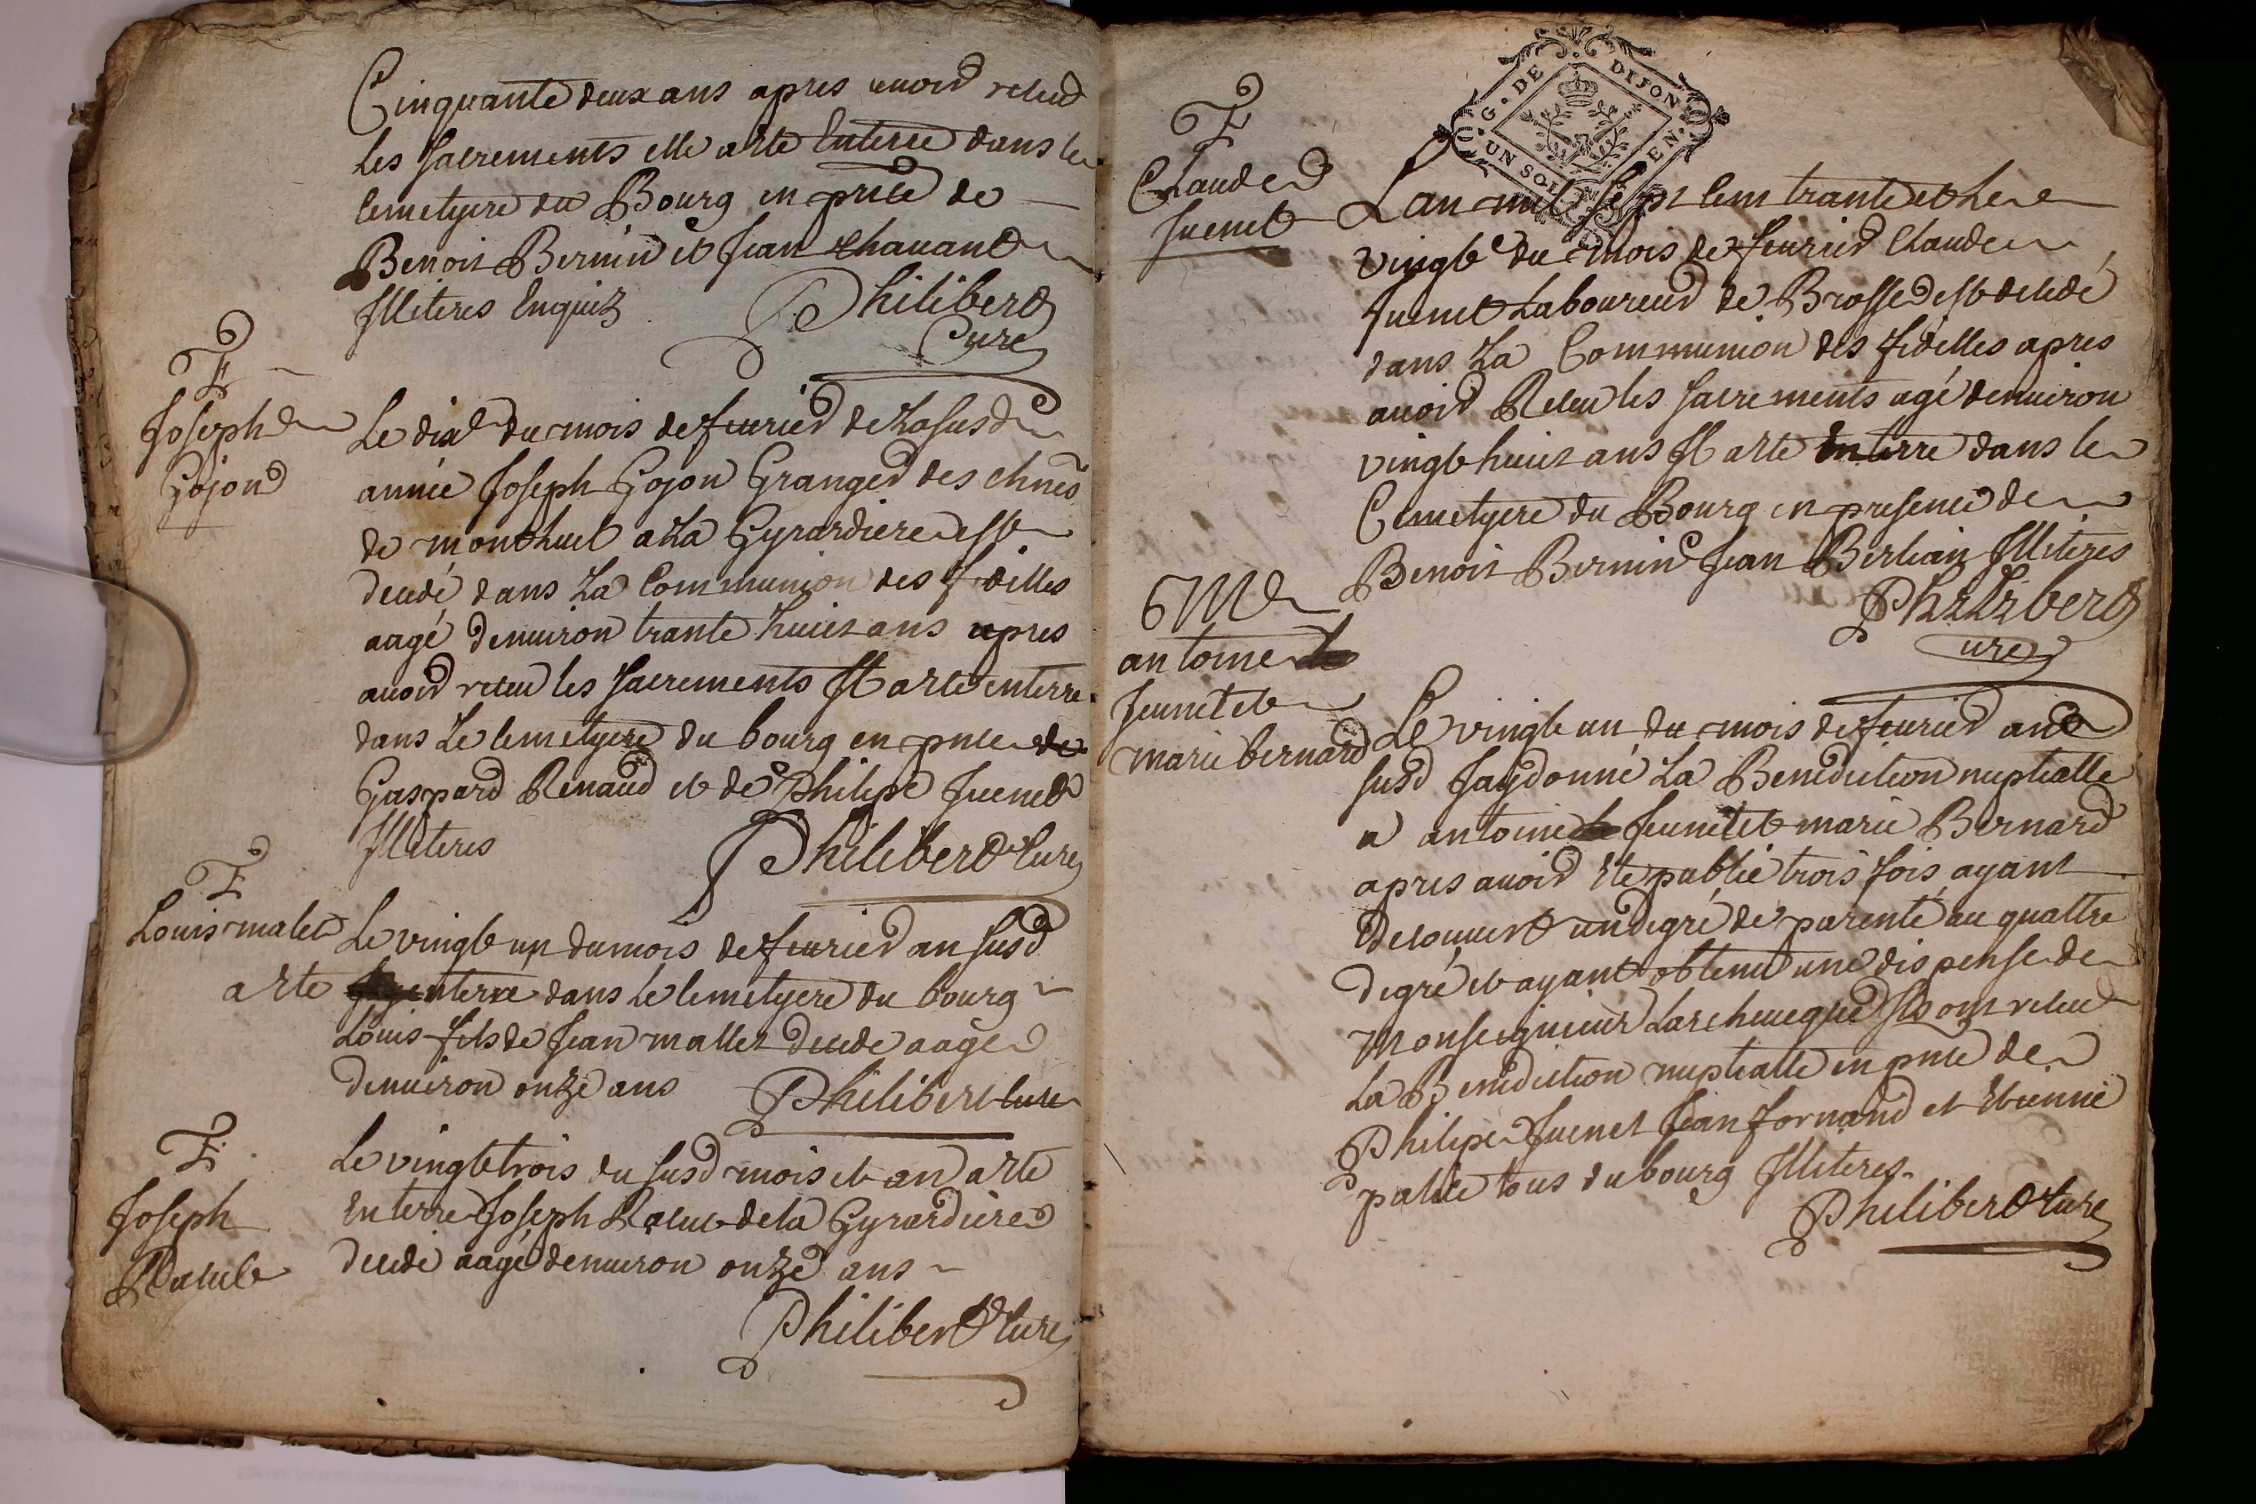 Cinquante deux ans apres auoir receu
Les Sacrements elle a este Enterré dans le
Cemetyere du Bourg en pnce de
Benoit Bernin et Jean Chauant
Illiteres Enquis Philibert
Curé
F
Joseph
Gojon
Le dixe du mois de feurier de La susd
année Joseph Gojon Granger des
de monthuel a La Gyrardiere est
decedé dans La Communion des fidelles
aagé denuiron trante huict ans apres
auoir receu les Sacrements Il a este enterre
dans Le Cemetyere du bourg en pnce de
Gaspard Renaud et de Philipe Juenet
Illiteres Philibert Curé
F
Louis malet
Le vingt un du mois de feurier an susd
a este enterre dans Le Cemetyere du bourg
Louis fils de Jean mallet decede aagé
denuiron onze ans Philibert Curé
F
Joseph
Racut
Le vingt trois du susd mois et an a este
Enterre Joseph Racut de la Gyrardiere
decede aagé denuiron onze ans
Philibert Curé
G. DE DIJON
UN SOL EN.
F
Claude
Juenet
Lan mil sept Cent trante et Le
vingte du mois de feurier Claude
Juenet Laboureur de Brosse est decedé
dans La Communion des fidelles apres
auoir Receu les Sacrements agé denuiron
vingt huict ans Il a este Enterre dans le
Cemetyere du Bourg en presence de
Benoit Bernin Jean Illiteres
Philibert
Curé
M
antoine
Jeunet et
marie bernard
Le vingt un du mois de feurier an
susd Jay donné La Benediction nuptialle
a antoine Jeunet et marie Bernard
apres auoir Eté publié trois fois ayant
Decouuert un degré de parenté au quattre
degré et ayant obtenu une dispense de
Monseigneur Larcheueque Ils ont receu
La Benediction nuptialle en pnce de
Philipe Juenet Jean fornand et Etienne
tous du bourg Illiteres.
Philibert Curé